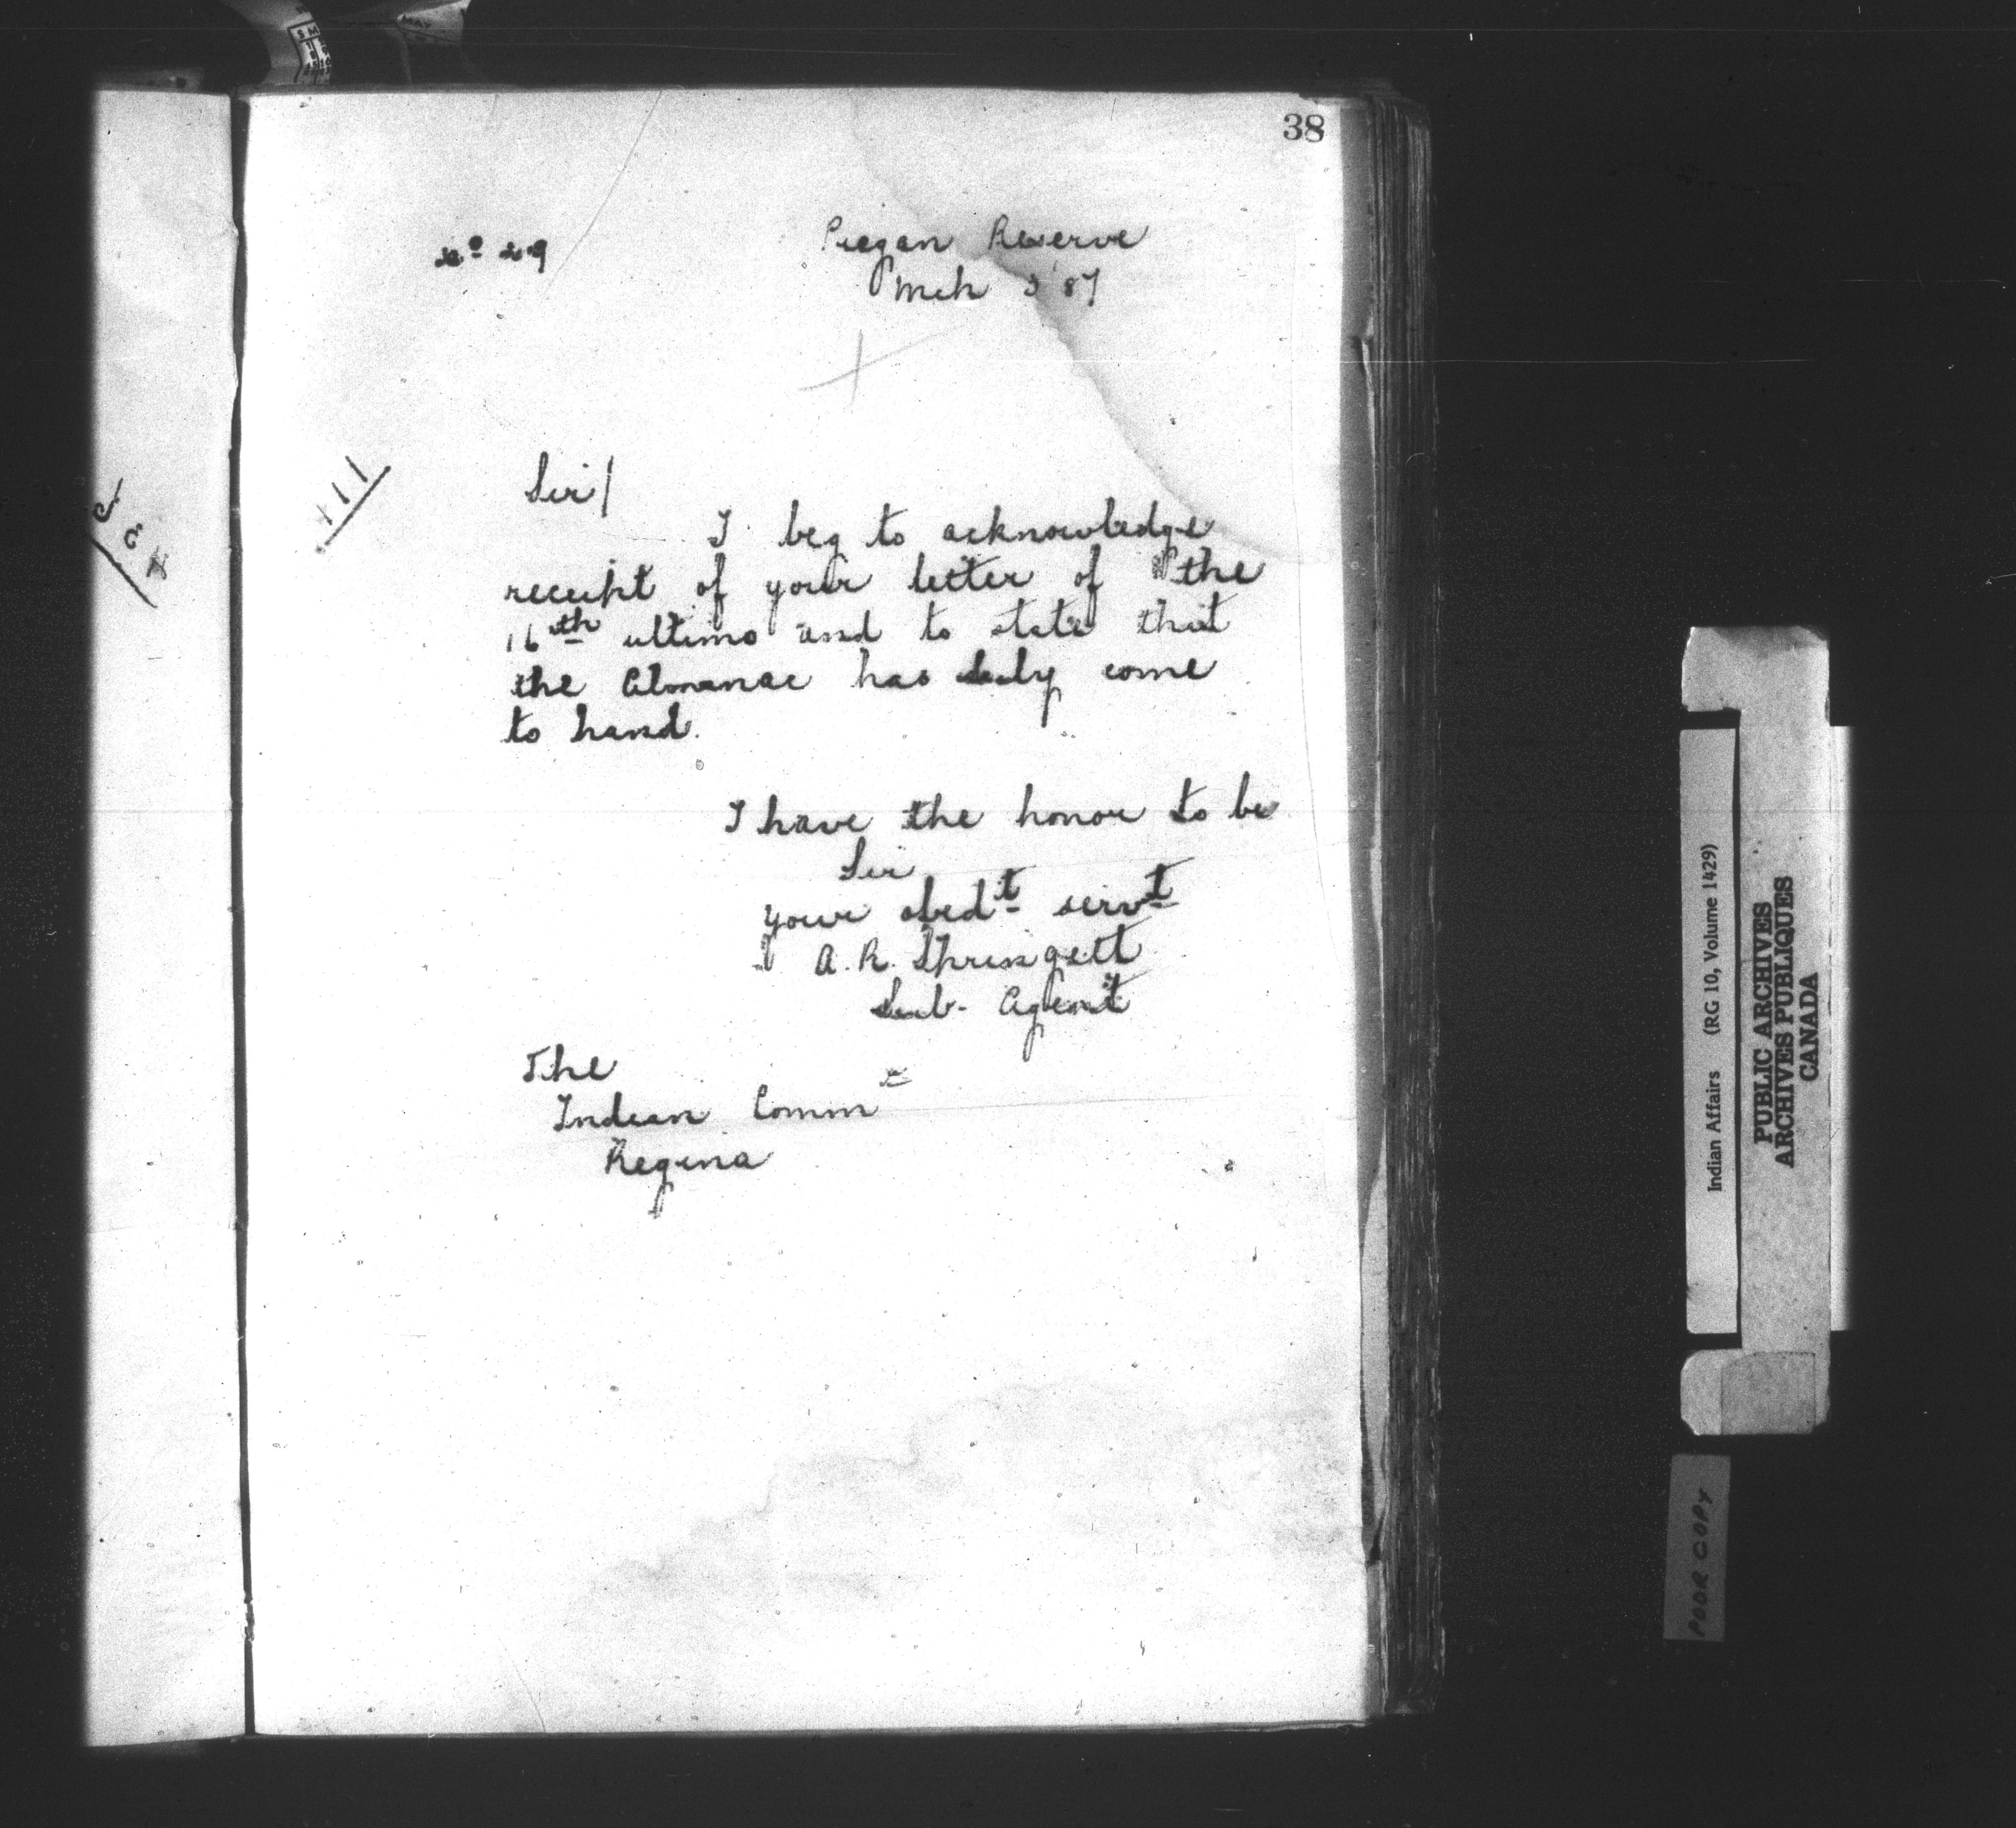 38
No 29
Piegan Reserve
Mch 3 '87
Sir/
I beg to acknowledge
receipt of your letter of the
16th ultimo and to state that
the Almanac has duly come
to hand.
I have the honor to be
Sir
your obedt servt
A. R. Springett
Sub- Agent
The
Indian Commr
Regina
Indian Affairs (RG 10, Volume 1429)
PUBLIC ARCHIVES
ARCHIVES PUBLIQUES
CANADA
POOR COPY